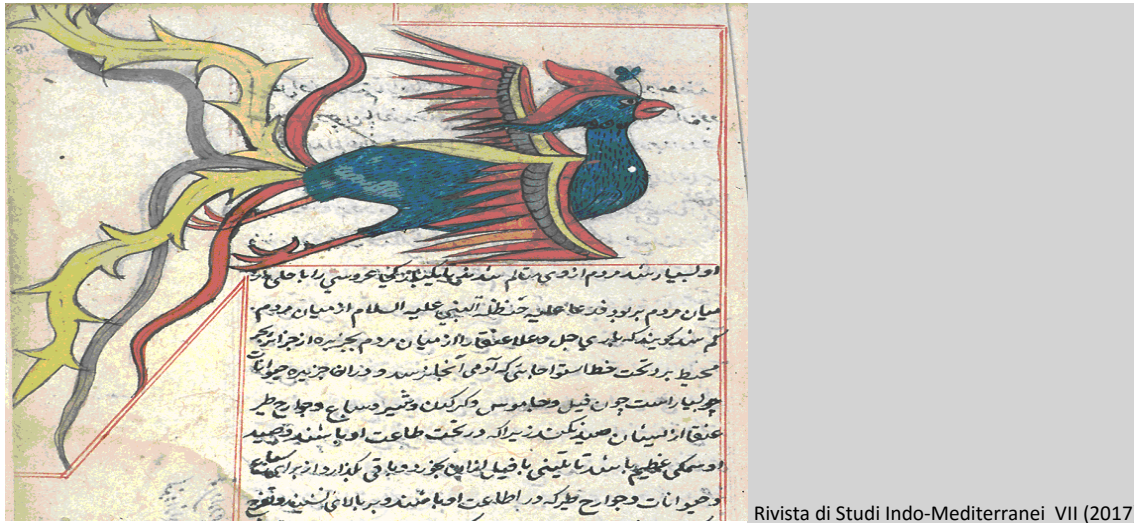 مردم ازوی عروسی را با حلی از
میان مردم بربود فدعا علیه حنظلة النبی علیه السلام از میان مردم
کم شد کویند که باری جل وعلا عنقا را از میان مردم بجزیره از جزایر بحر
محیط برد تحت خط استوا جایی که آدمی آنجا نرسد و دران جزیره حیوانات
چون فیل و جاموس و کرکدن و شیر و سباع و جوارح طیر
عنقا از ایشان صید نکند زیرا که در تحت طاعت او باشند و صید
او سمکی عظیم باشد یا تنینی یا فیل ازان بخورد و باقی بکذارد از برای سباع
و حیوانات و جوارح طیر که در اطاعت او باشند و بر بالای نشیند و تفرج
Rivista di Studi Indo-Mediterranei VII (2017